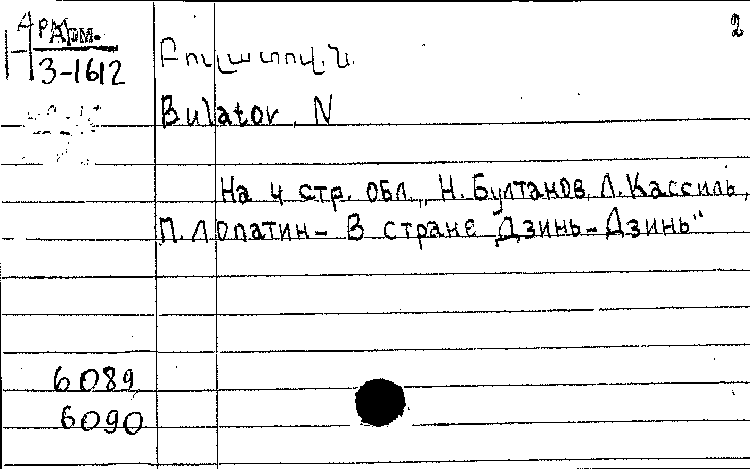 2
Арм.
3-1612
Բուլատով, Ն.
Bulator, N
На 4 стр. обл. „Н. Булт​анов, Л. Кассиль,
П. Лопатин - В стране Дзинь-Дзинь"
6089
6090